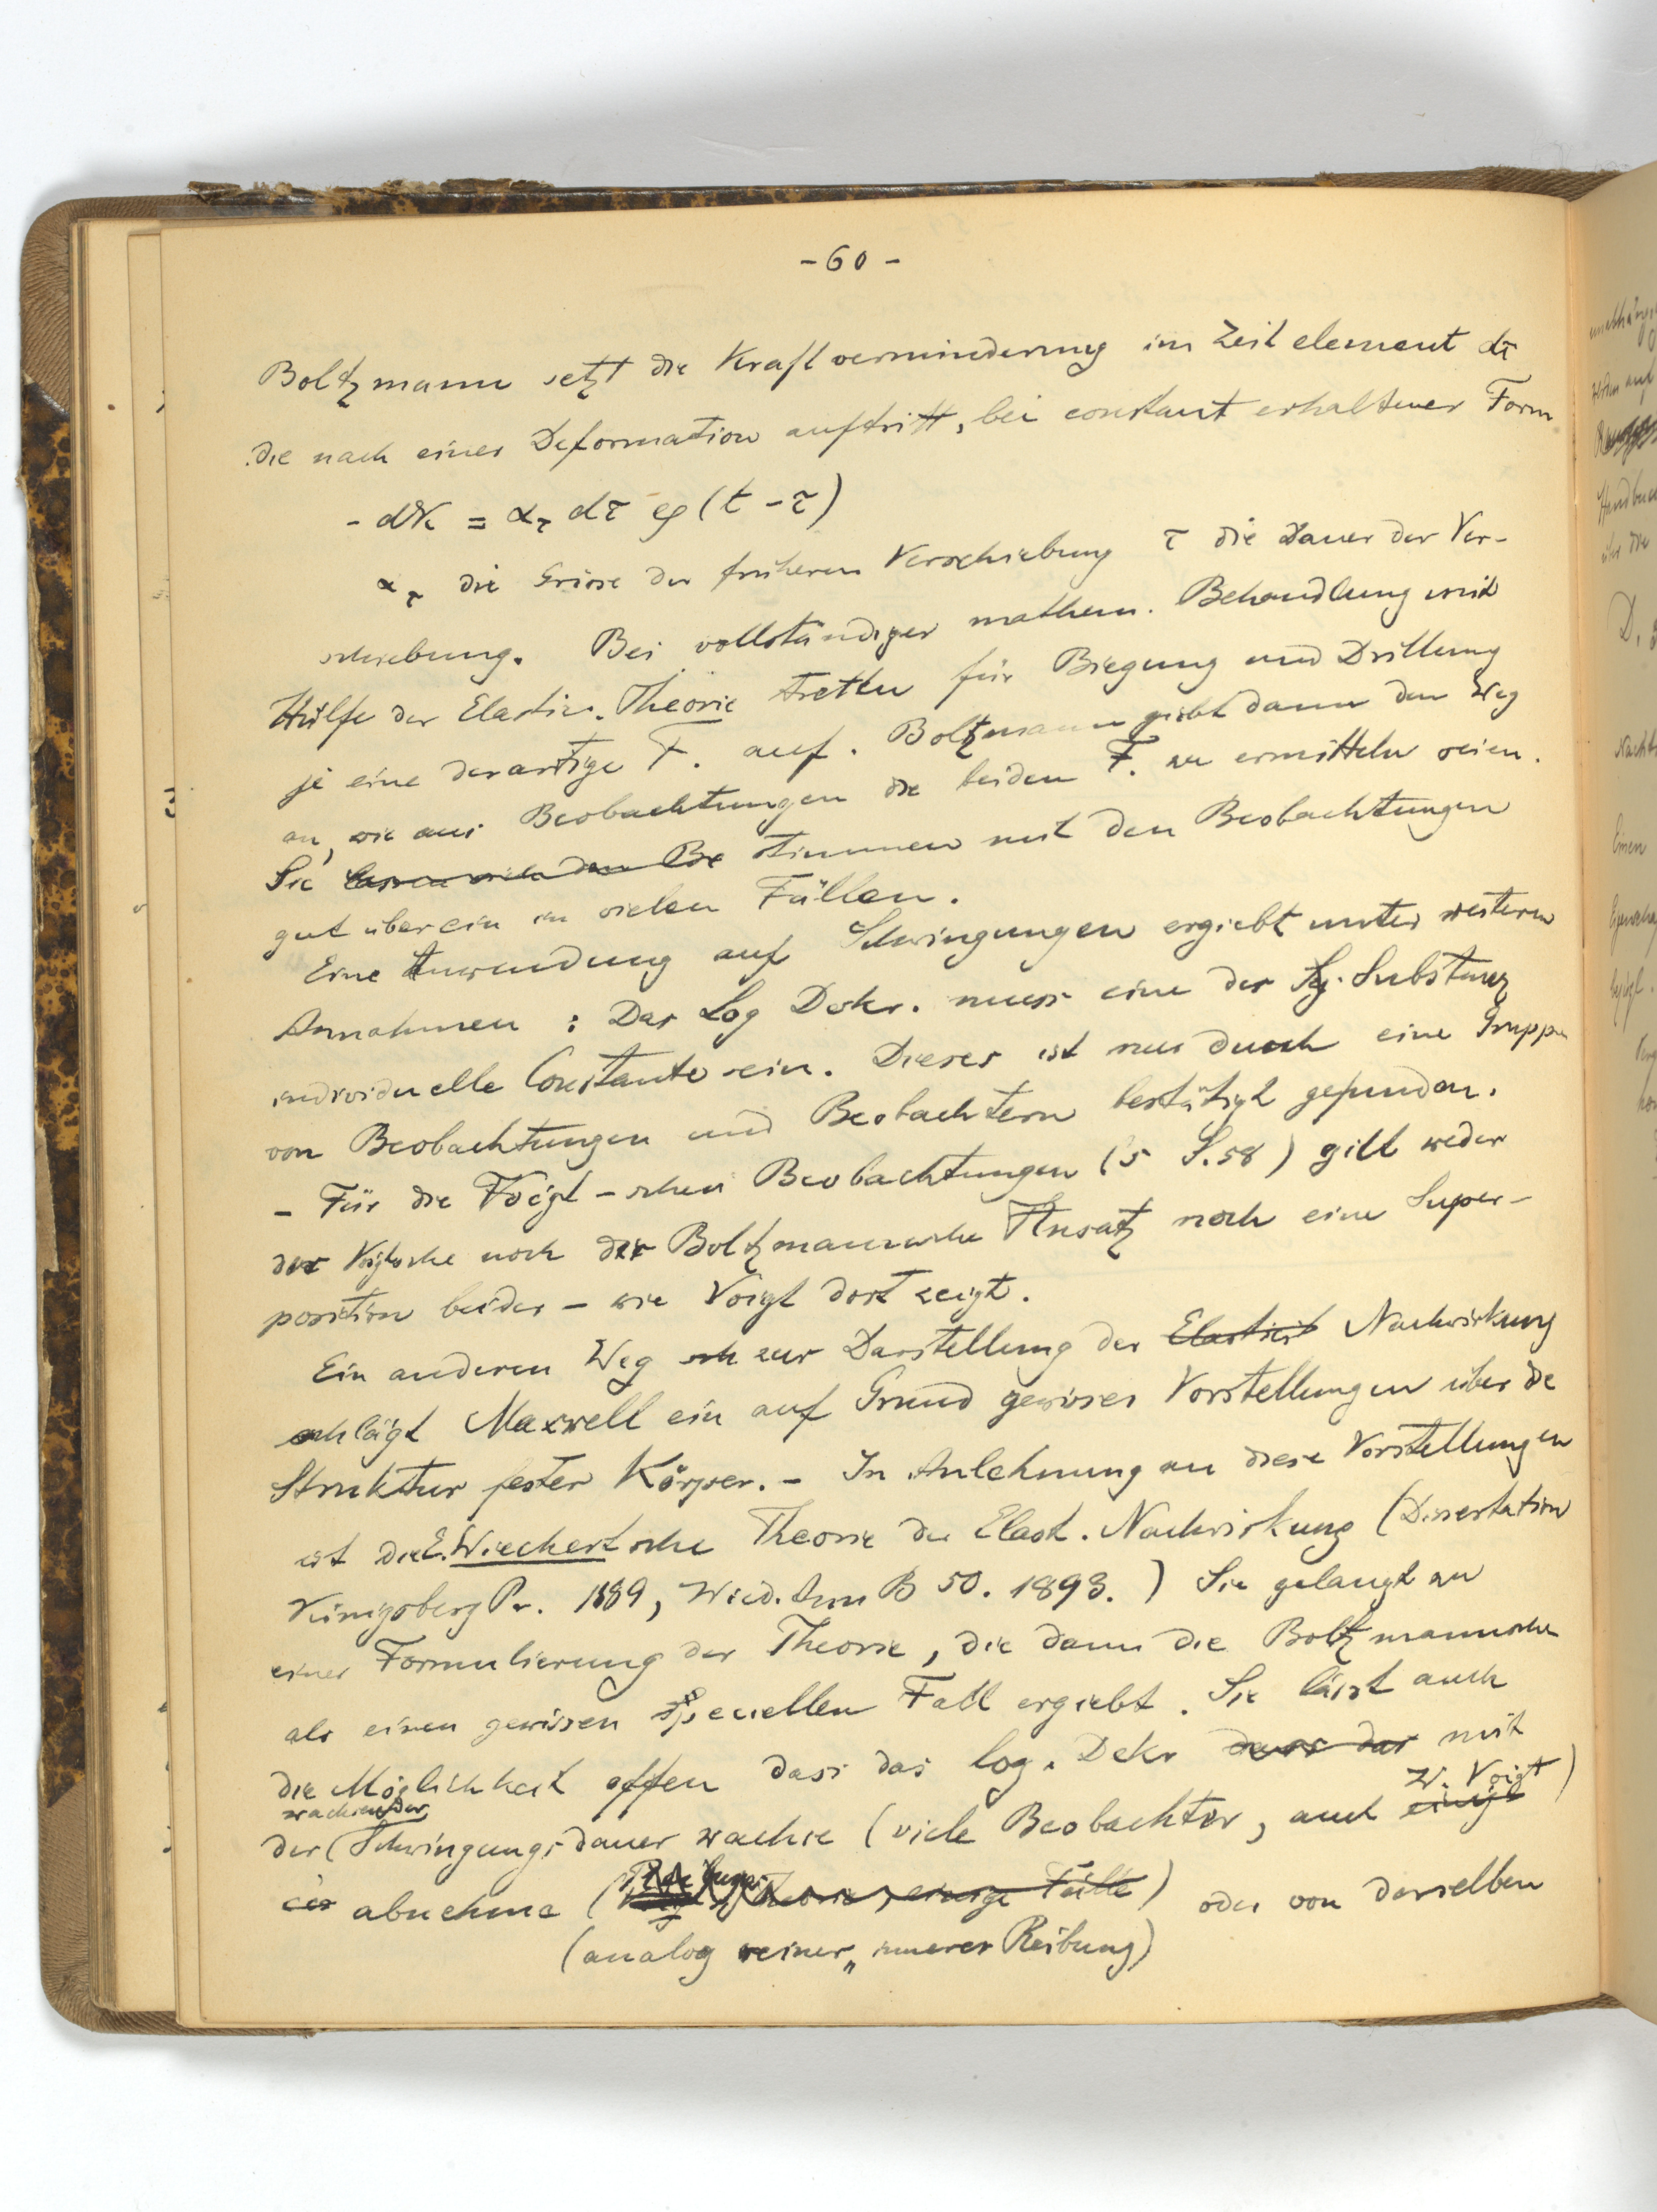 - 60 -
Boltzmann setzt die Kraftverminderung im Zeitelement dτ
die nach einer Deformation auftritt, bei constant erhaltener Form
- dK = α_τ dτ φ(t - τ)
α_τ die Grösse der früheren Verschiebung τ die Dauer der Ver-
schiebung. Bei vollständiger mathem. Behandlung mit
Hülfe der Elastic. Theorie treten für Biegung und Drillung
je eine derartige F. auf. Boltzmann giebt dann den Weg
an, wie aus Beobachtungen die beiden F. zu ermitteln seien.
Sie lassen sich den Be stimmen mit den Beobachtungen
gut überein in vielen Fällen.
Eine Anwendung auf Schwingungen ergiebt unter weiteren
Annahmen : Das Log Dekr. muss eine der Substanz
individuelle Constante sein. Dieses ist nur durch eine Gruppe
von Beobachtungen und Beobachtern bestätigt gefunden.
- Für die Voigt-schen Beobachtungen (s S. 58) gilt weder
der Voigtsche noch der Boltzmannsche Ansatz noch eine Super-
position beider - wie Voigt dort zeigt.
Ein anderen Weg sch zur Darstellung der Elasticit Nachwirkung
schlägt Maxwell ein auf Grund gewisser Vorstellungen über die
Struktur fester Körper. - In Anlehnung an diese Vorstellungen
ist die E. Wiechertsche Theorie der Elast. Nachwirkung (Dissertation
Königsberg Pr. 1889, Wied. Ann B 50. 1893.) Sie gelangt zu
einer Formulierung der Theorie, die dann die Boltzmannsche
als einen gewissen speciellen Fall ergiebt. Sie lässt auch
die Möglichkeit offen dass das log. Dekr dass das mit
wachsender W. Voigt)
der (Schwingungsdauer wachse (viele Beobachter, auch einige
abnehme ( Theorie, einige Fälle) oder von derselben
(analog seiner „innerer Reibung)